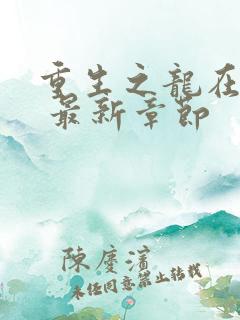 重生之龍在
最新章節
陳慶濱
未经同意禁止转载